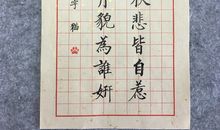 秋悲皆自惹
月貌為誰妍